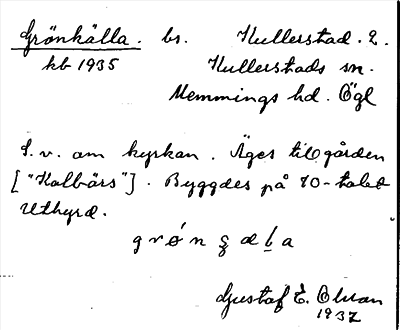 Grönkälla. bs. Hullerstad. 2.
kb 1935 Kullerstads sn.
Memmings hd. Ögl
S. v. om kyrkan. Äges till gården
["Kalbärs"]. Byggdes på 10-talet
Uthyrd.
grǿn ȿ æḷa
Gustaf E. Olsson
1937